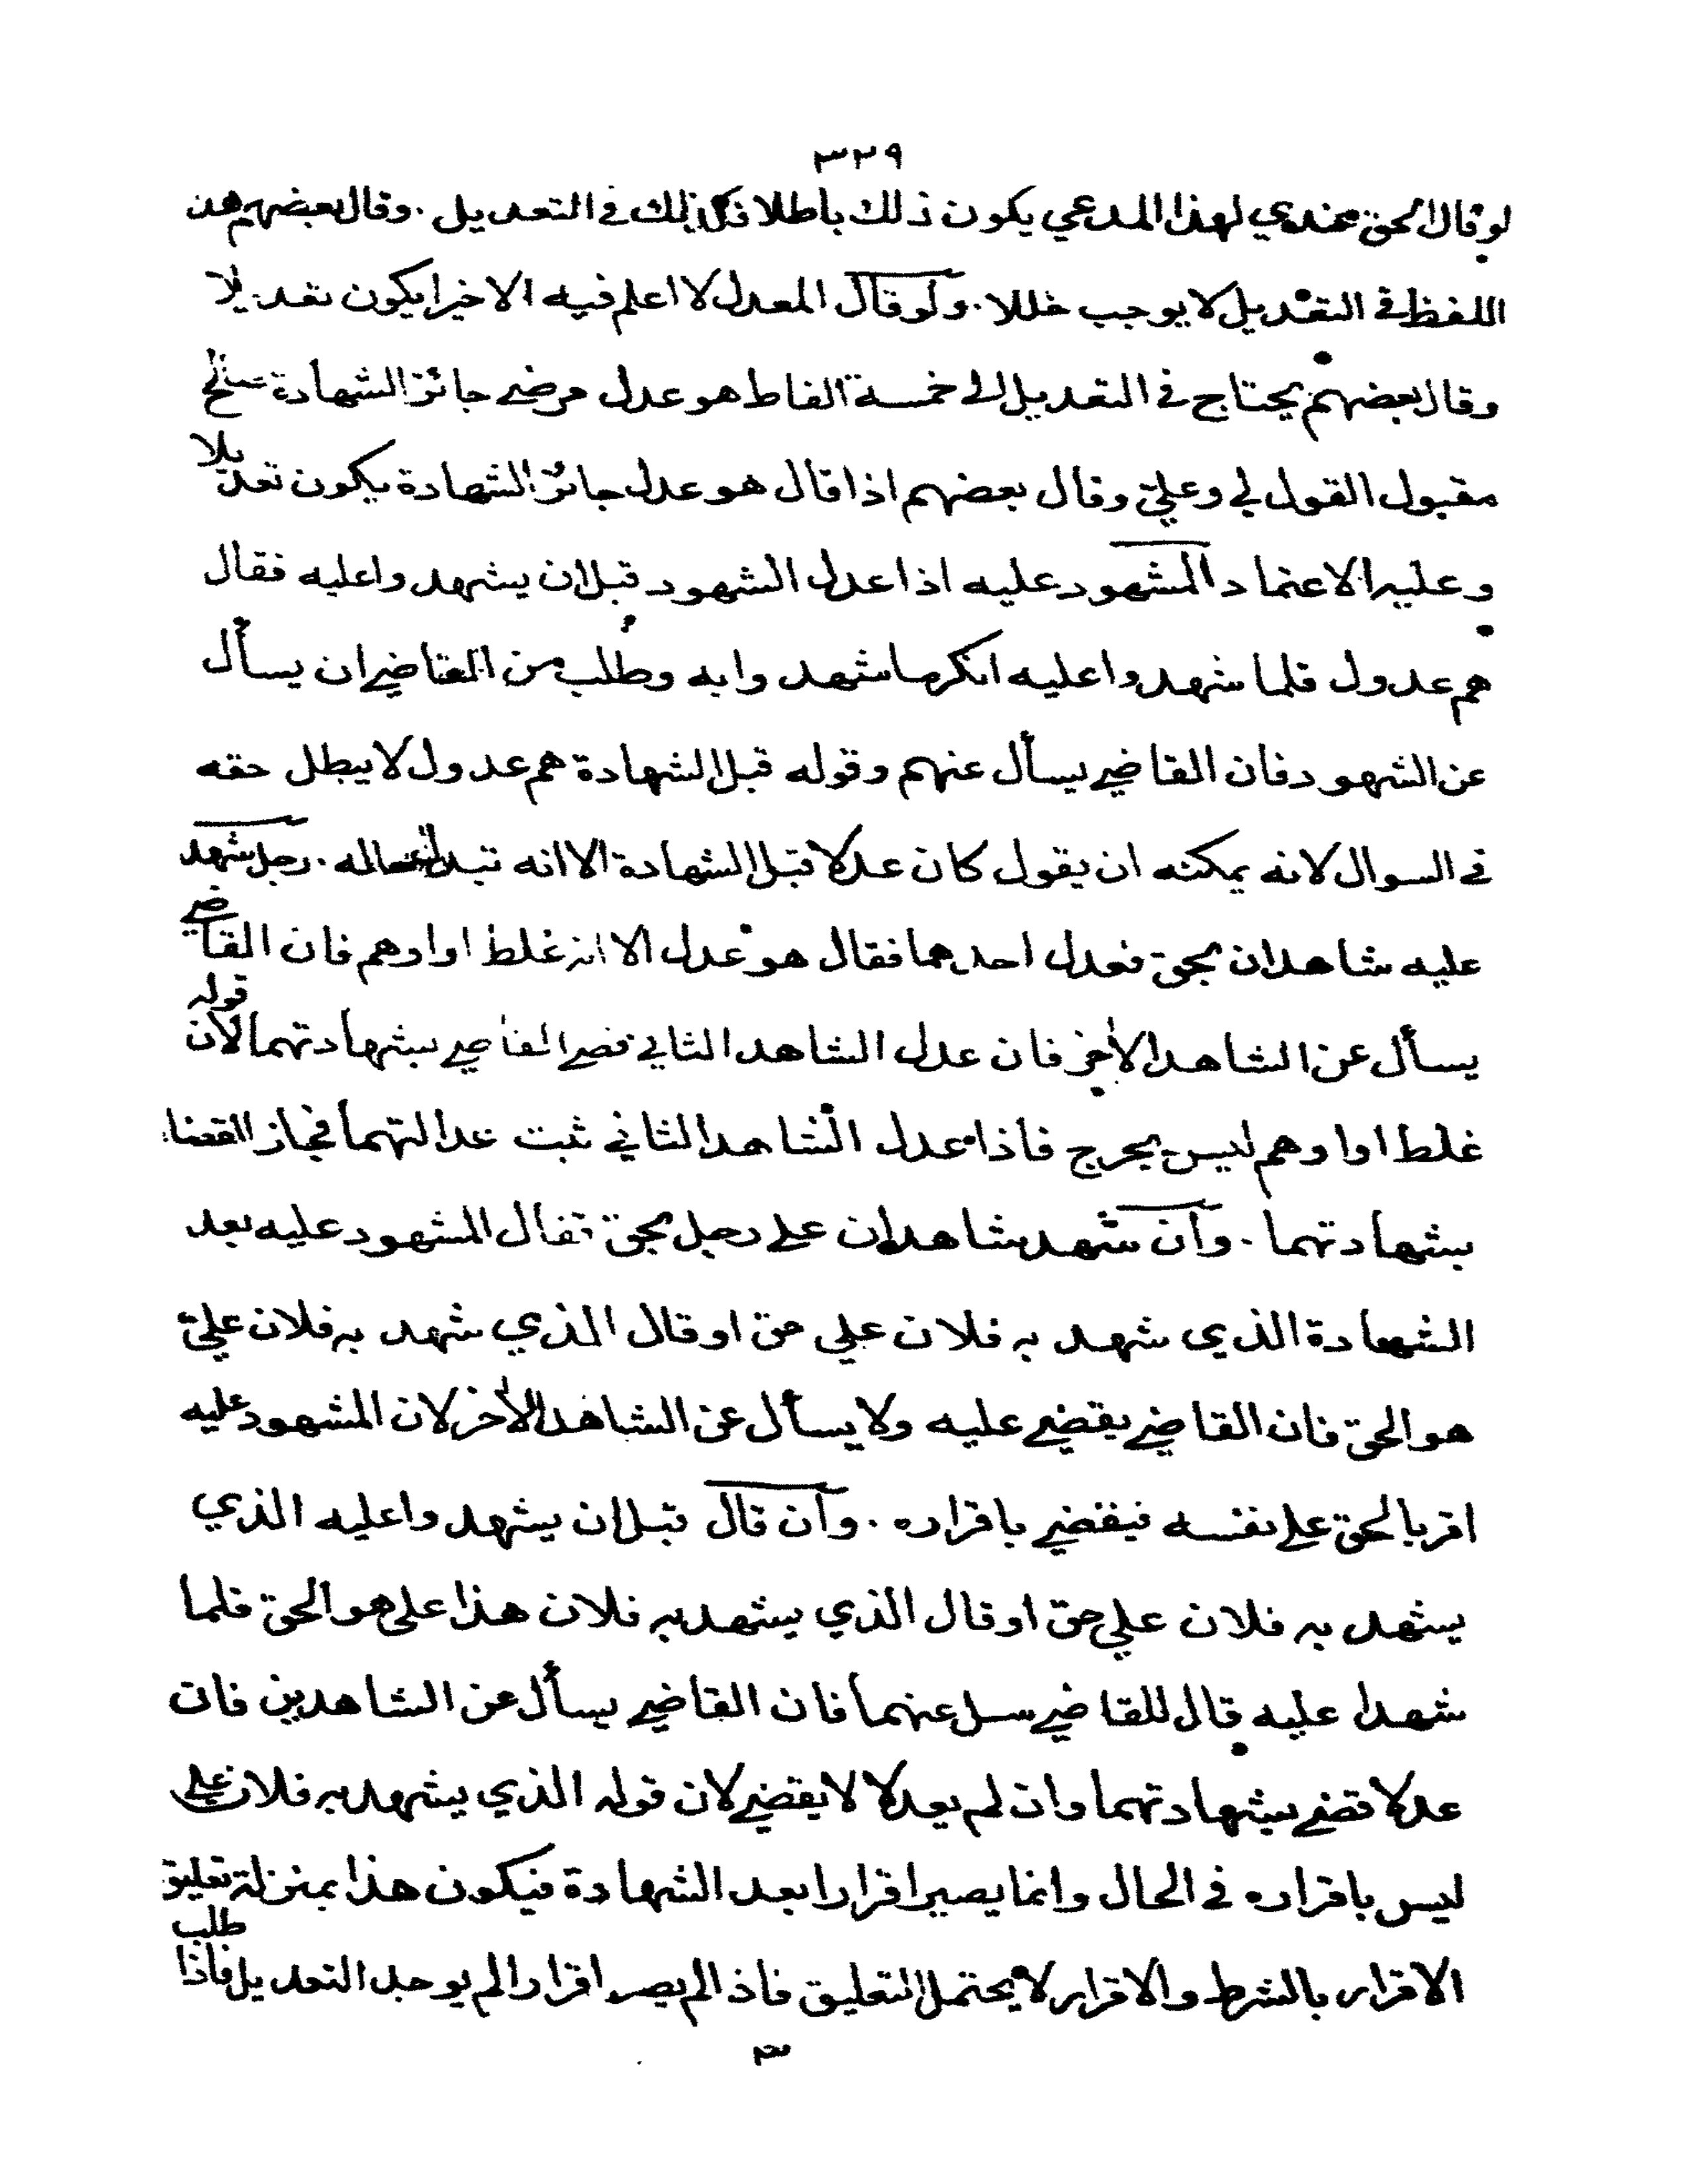 ٣٢٩
لو قال الحق عندي لهذا المدعي يكون ذلك باطلا فكذلك في التعديل . وقال بعضهم هذا
اللفظ في التعديل لا يوجب خللا . ولو قال المعدل لا اعلم فيه الا خيرا يكون تعديلا
وقال بعضهم يحتاج في التعديل الى خمسة الفاظ هو عدل مرضي جائز الشهادة صالح
مقبول القول لي وعليّ وقال بعضهم اذا قال هو عدل جائز الشهادة يكون تعديلا
وعليه الاعتماد المشهود عليه اذا عدل الشهود قبل ان يشهدوا عليه فقال
هم عدول فلما شهدوا عليه انكر ما شهدوا به وطلب من القاضي ان يسأل
عن الشهود فان القاضي يسأل عنهم وقوله قبل الشهادة هم عدول لا يبطل حقه
في السوال لانه يمكنه ان يقول كان عدلا قبل الشهادة الا انه تبدل حاله . رجل شهد
عليه شاهدان بحق فعدل احدهما فقال هو عدل الا انه غلط او اوهم فان القاضي
يسأل عن الشاهد الآخر فان عدل الشاهد الثاني قضى القاضي بشهادتهما لان قوله
غلط او اوهم ليس بجرح فاذا عدل الشاهد الثاني ثبت عدالتهما فجاز القضاء
بشهادتهما . وان شهد شاهدان على رجل بحق فقال المشهود عليه بعد
الشهادة الذي شهد به فلان علي حق او قال الذي شهد به فلان عليّ
هو الحق فان القاضي يقضي عليه ولا يسأل عن الشاهد الآخر لان المشهود عليه
اقر بالحق على نفسه فيقضي باقراره . وان قال قبل ان يشهدوا عليه الذي
يشهد به فلان علي حق او قال الذي يشهد به فلان هذا على هو الحق فلما
شهدا عليه قال للقاضي سل عنهما فان القاضي يسأل عن الشاهدين فان
عدلا قضى بشهادتهما وان لم يعدلا لا يقضي لان قوله الذي يشهد به فلان علي
ليس باقراره في الحال وانما يصير اقرارا بعد الشهادة فيكون هذا بمنزلة تعليق
الاقرار بالشرط والاقرار لا يحتمل التعليق فاذا لم يصر اقرارا لم يوجد التعديل فاذا طلب
٣